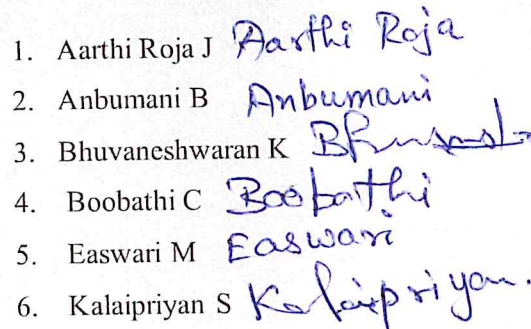 1. Aarthi Roja J Aarthi Roja
2. Anbumani B Anbumani
3. Bhuvaneshwaran K
4. Boobathi C Boobathi
5. Easwari M Easwari
6. Kalaipriyan S Kalaipriyan.